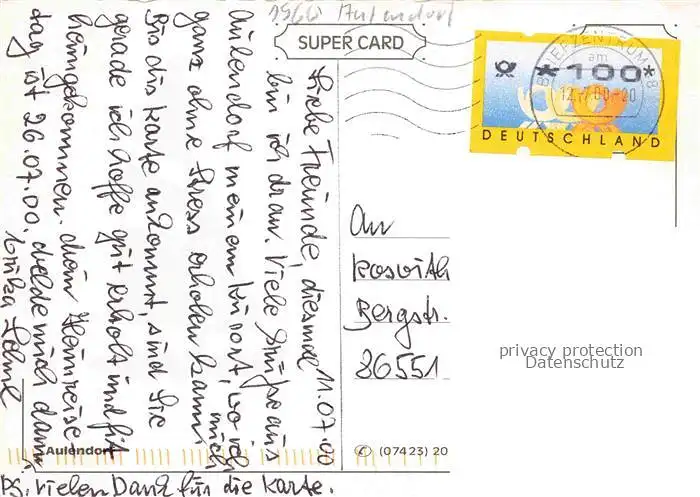 SUPER CARD
8966 Aulendorf
11.07.00
Liebe Freunde, diesmal
bin ich dran. Viele Grüße aus
Aulendorf meinem Kurort, wo ich
ganz ohne Stress erholen kann. mich
Bis die Karte ankommt, sind Sie
gerade ich hoffe gut erholt und fit
heimgekommen. Mein Heimreise
tag ist 26.07.00, melde mich dann
Erika
PS. Vielen Dank für die Karte.
BRIEFZENTRUM 88
am
12.-7.00-20
*100*
DEUTSCHLAND
An
Roswith
Bergstr.
86551
privacy protection
Datenschutz
Aulendorf
(07423) 20